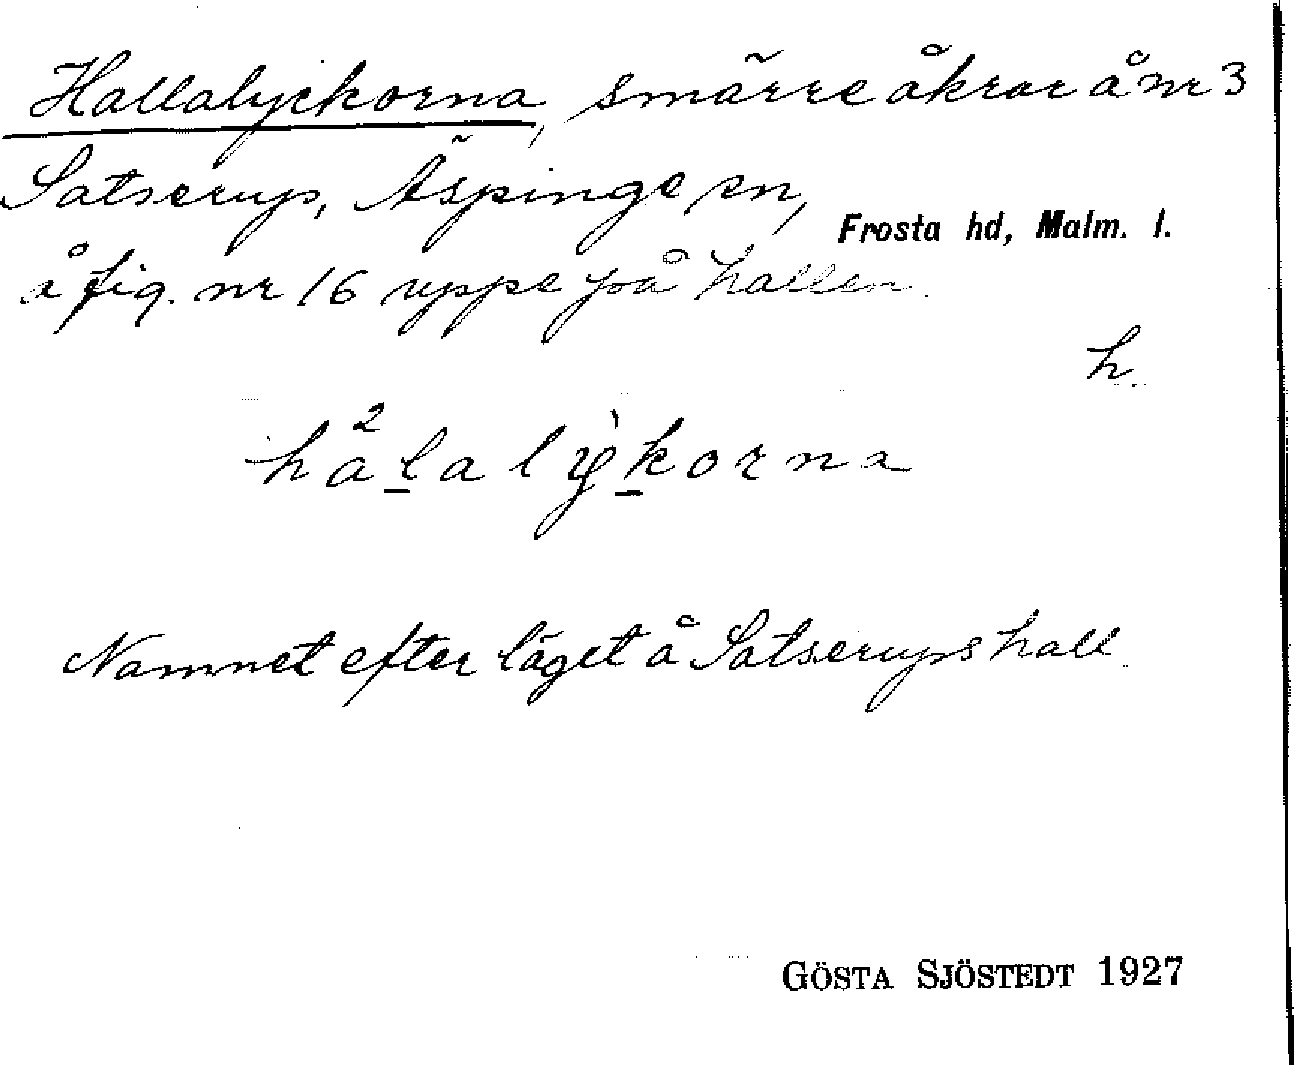 Hallalyckorna, smärre åkrar å nr 3
Satserup, Äspinge sn,
Frosta hd, Malm. l.
å fig. nr 16 uppe på hallen.
h.
hå²lalỳkorna
Namnet efter läget å Satserups hall.
GÖSTA SJÖSTEDT 1927